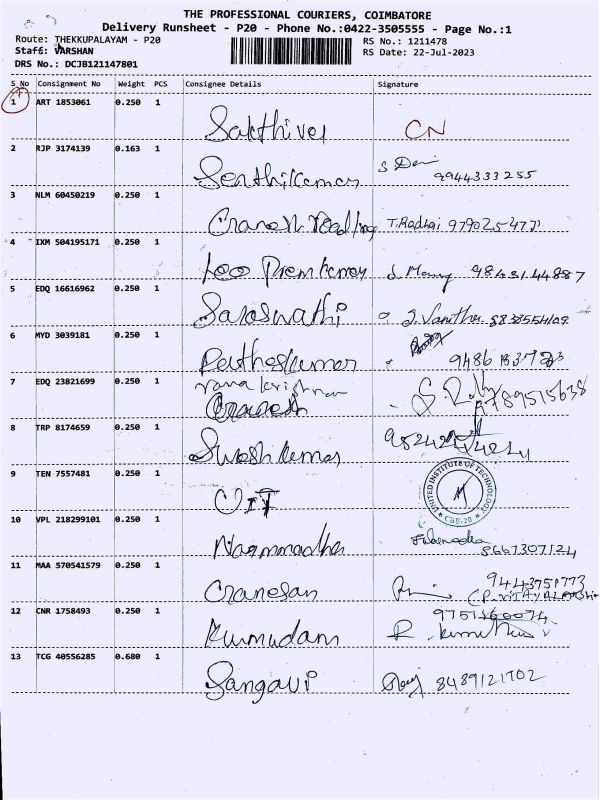 THE PROFESSIONAL COURIERS, COIMBATORE
Delivery Runsheet - P20 - Phone No.:0422-3505555 - Page No.:1
Route: THEKKUPALAYAM - P20
RS No.: 1211478
Staff: VARSHAN
RS Date: 22-Jul-2023
DRS No.: DCJB121147801
S No Consignment No Weight PCS Consignee Details Signature
1 ART 1853061 0.250 1
Sakthivel CN
2 RJP 3174139 0.163 1
Senthilkumar 9944333255
3 NLM 60450219 0.250 1
Ganesh Trading T.Radhai
4 IXM 504195171 0.250 1
Leo Premkumar 9843144887
5 EDQ 16616962 0.250 1
Saraswathi J. Vanitha
6 MYD 3039181 0.250 1
7 EDQ 23821699 0.250 1
Ganesh
8 TRP 8174659 0.250 1
Sureshkumar
9 TEN 7557481 0.250 1
UIT
UNITED INSTITUTE OF TECHNOLOGY
CBE-20
10 VPL 218299101 0.250 1
8667307124
11 MAA 570541579 0.250 1
Ganesan
9443751773
12 CNR 1758493 0.250 1
Kumudam
13 TCG 40556285 0.680 1
Sangavi 8489121702